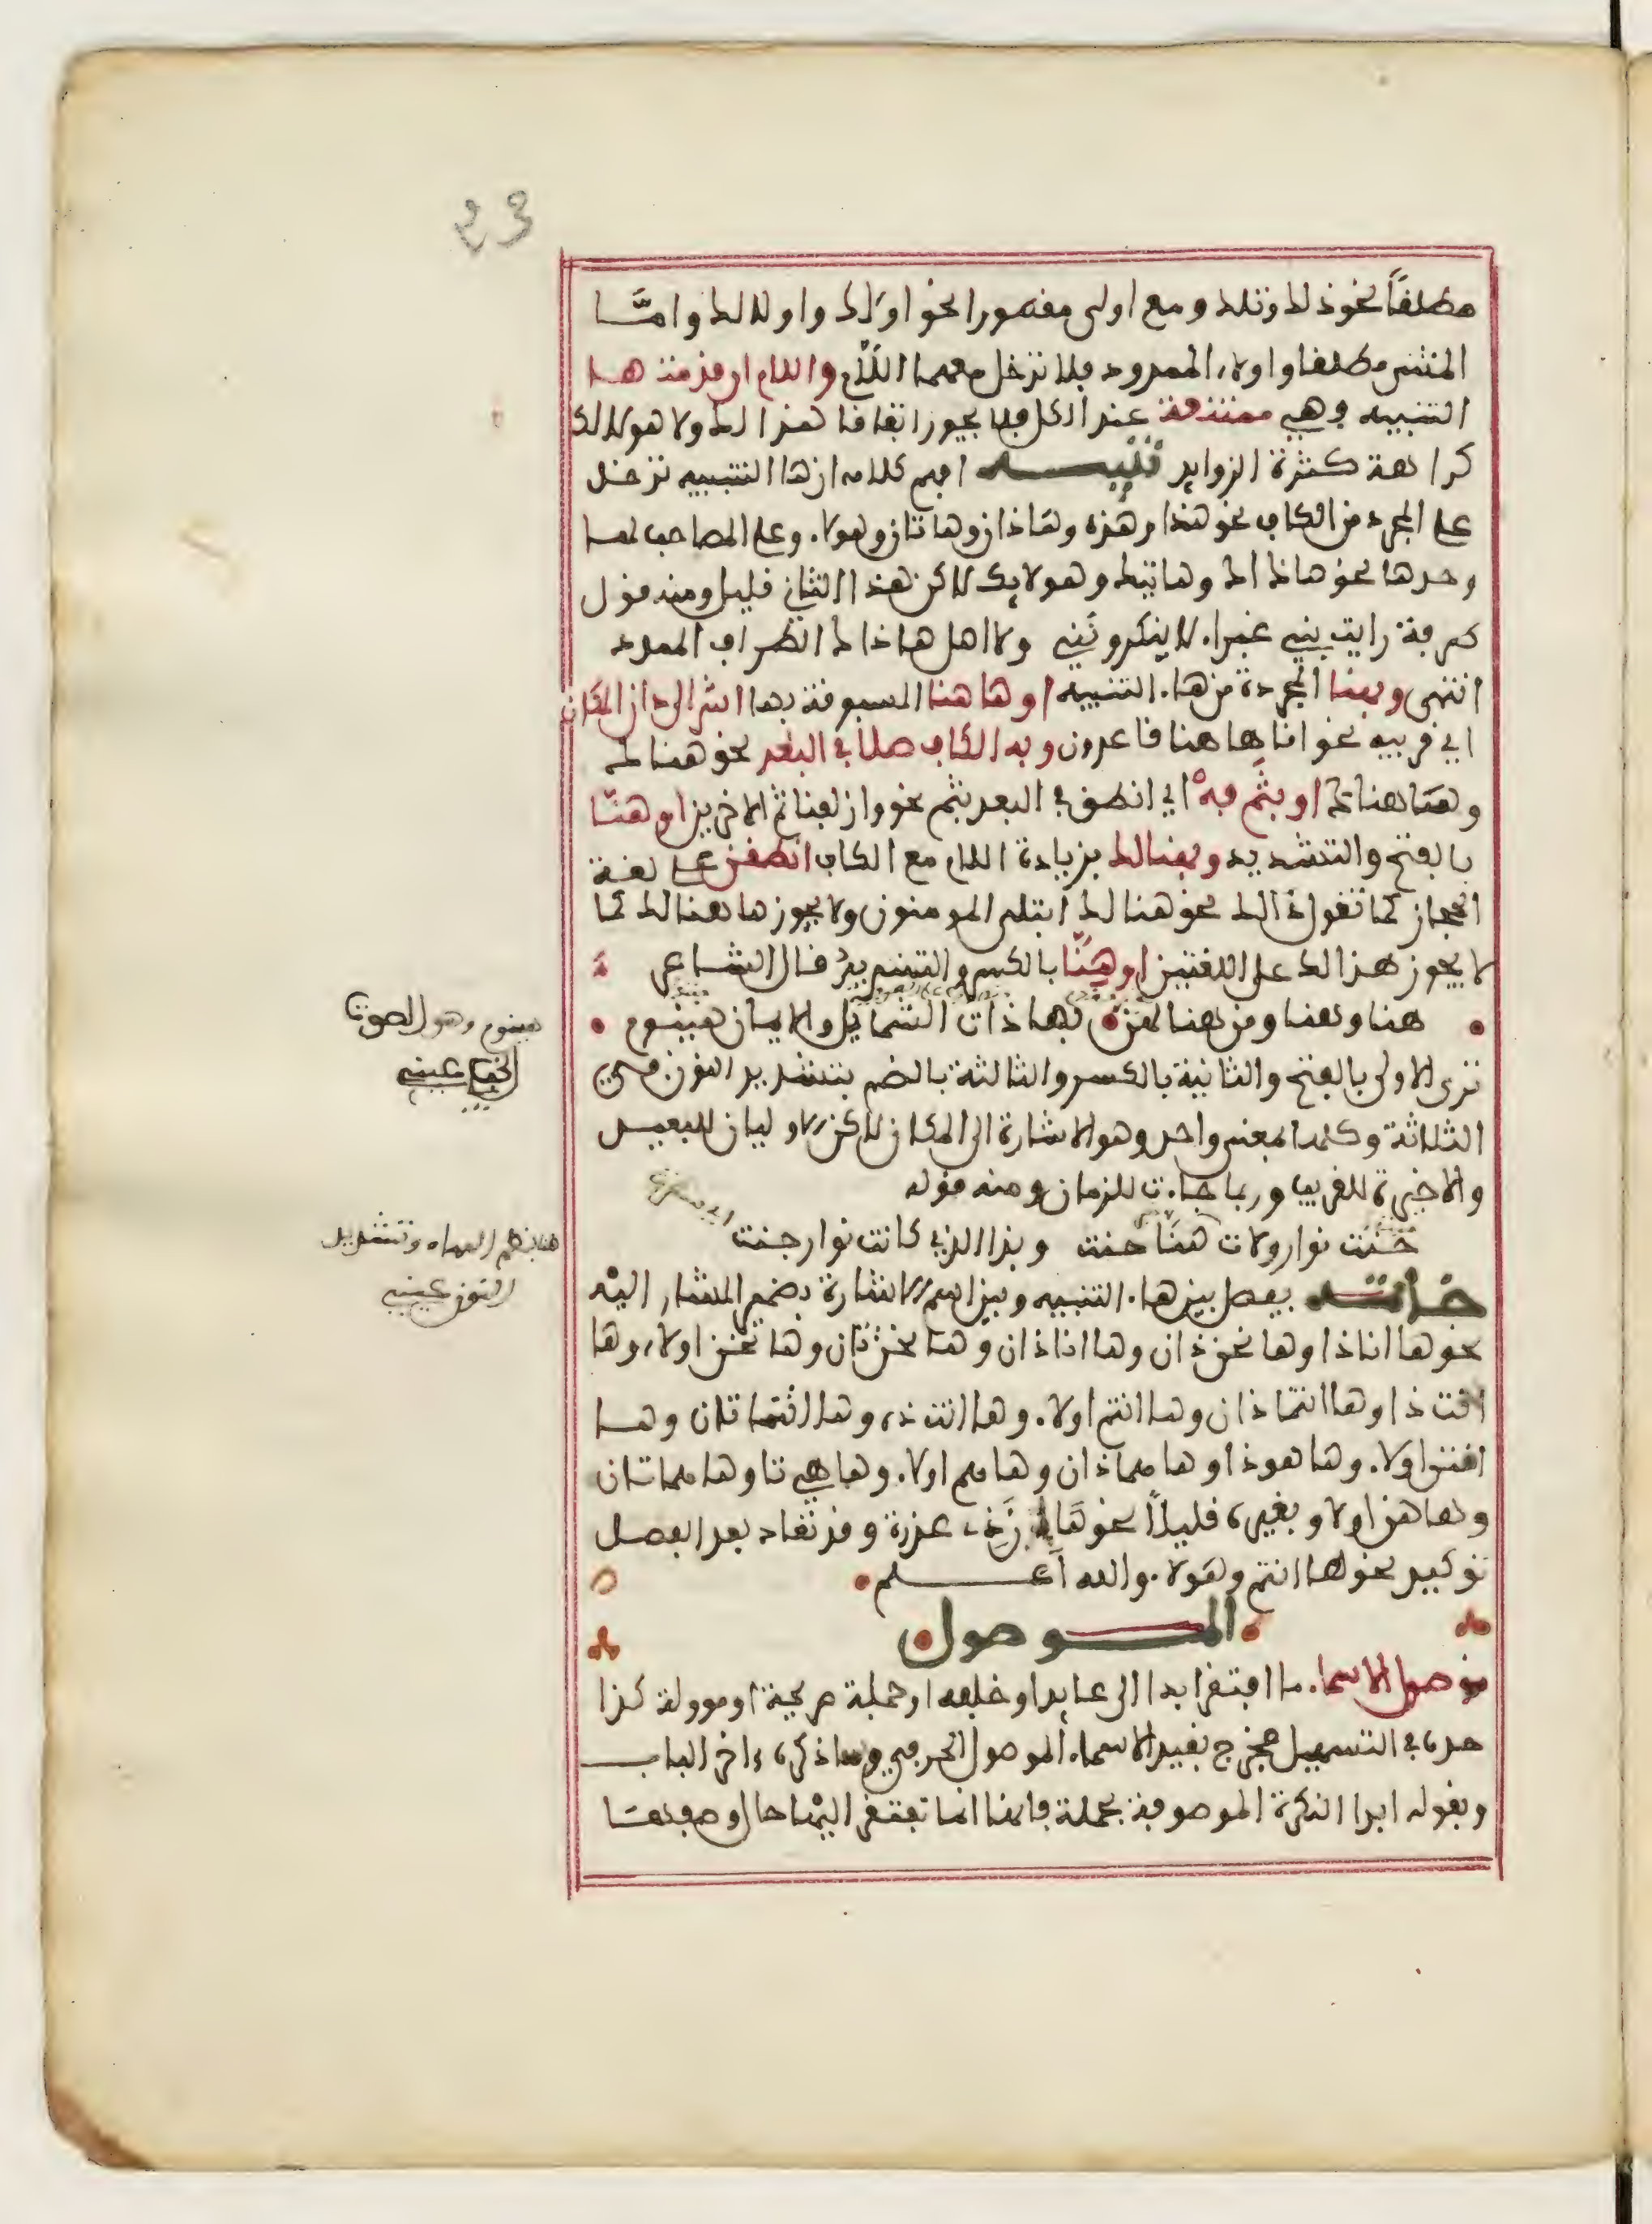 23
مطلقاً نحو ذلك وتلك ومع اولى مقصورا نحو اولاك واولالك وامّا
المثنى مطلقا واولاء الممدود فلا تدخل معهما اللّام واللام ان قدمت هـا
التنبيه وهي ممتنعة عند الكل فلا يجوز اتفاقا هذالك ولا هولالك
كراهة كثرة الزوايد تنبيـــه افهم كلامه ان ها التنبيه تدخل
على المجرد من الكاف نحو هذا وهذه وهاذان وهاتان وهولاء وعلى المصاحب لها
وحدها نحو هاذاك وهاتيك وهولايك لاكن هذا الثاني قليل ومنه قول
طرفة رايت بني غبراء لا ينكرونني ولا اهل هاذاك الطراف الممدد
انتهى وبهنا المجردة من هاء التنبيه او هاهنا المسبوقة بها اشر الى دان المكان
اي قريبه نحو انا هاهنا قاعدون وبه الكاف صلا في البعد نحو هناك
وهاهناك او بثَم فه اي انطق في البعد بثم نحو وازلفنا ثم الاخرين او هنّا
بالفتح والتشديد وبهنالك بزيادة اللام مع الكاف انطقن على لغة
الحجاز كما تقول ذالك نحو هنالك ابتلى المومنون ولا يجوز هاهنالك كما
لا يجوز هذالك على اللغتين او هِنّا بالكسر والتشديد قال الشاعر
هنا وهنا ومن هنا لهن بها ذات الشمايل والايمان هينوم
تروى الاولى بالفتح والثانية بالكسر والثالثة بالضم بتشديد النون في
الثلاثة وكلها بمعنى واحد وهو الاشارة الى المكان لاكن الاوليان للبعيد
والاخيرة للقريب وربما جاءت للزمان ومنه قوله
حنّت نوار ولات هنّا حنت وبدا الذي كانت نوار جنت
خاتمــة يفصل بين هاء التنبيه وبين اسم الاشارة بضمير المشار اليه
نحو ها انا ذا وها نحن ذان وها انا ذان وها نحن تان وها نحن اولاء وها
انت ذا وها انتما ذان وها انتم اولاء وها انت ذه وها انتما تان وهـا
انتن اولاء وها هو ذا وها هما ذان وها هم اولاء وها هي تا وها هما تان
وها هن اولاء وبغيره قليلاً نحو هَا إن ذي عذرة وقد تعاد بعد الفصل
توكيد نحو ها انتم هولاء والله اعـــلم
المـــوصول
موصول الاسماء ما افتقر ابدا الى عايد او خلفه وجملة صريحة او موولة كذا
حده في التسهيل فخرج بقيد الاسماء الموصول الحرفي وساذكره ءاخر الباب
وبقوله ابدا النكرة الموصوفة بجملة فانها انما تفتقر اليها حال وصفها
هينوم وهو الصوت
الخفي عيني
هنا بضم الهاء وتشديد
النون عيني